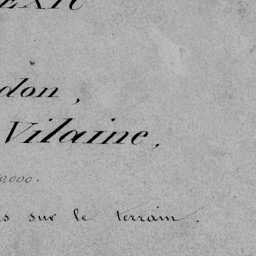 don,
Vilaine,
0,000.
s sur le terrain.